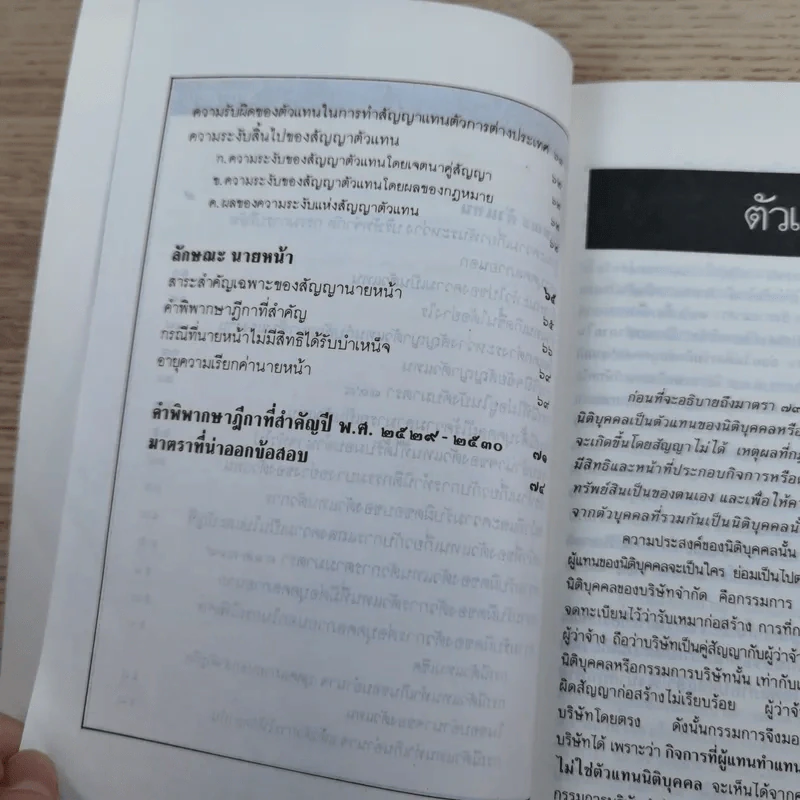 ความรับผิดของตัวแทนในการทำสัญญาแทนตัวการต่างประเทศ
ความระงับสิ้นไปของสัญญาตัวแทน
ก. ความระงับของสัญญาตัวแทนโดยเจตนาคู่สัญญา
ข. ความระงับของสัญญาตัวแทนโดยผลของกฎหมาย
ค. ผลของความระงับแห่งสัญญาตัวแทน
ลักษณะ นายหน้า
สาระสำคัญเฉพาะของสัญญานายหน้า ๖๕
คำพิพากษาฎีกาที่สำคัญ ๖๕
กรณีที่นายหน้าไม่มีสิทธิได้รับบำเหน็จ ๖๘
อายุความเรียกค่านายหน้า ๖๙
คำพิพากษาฎีกาที่สำคัญปี พ.ศ. ๒๕๒๙ - ๒๕๓๐ ๗๑
มาตราที่น่าออกข้อสอบ ๗๔
ตัวแ
ก่อนที่จะอธิบายถึงมาตรา ๗๙
นิติบุคคลเป็นตัวแทนของนิติบุคคลหรือ
จะเกิดขึ้นโดยสัญญาไม่ได้ เหตุผลที่กฎ
มีสิทธิและหน้าที่ประกอบกิจการหรือด
ทรัพย์สินเป็นของตนเอง และเพื่อให้คว
จากตัวบุคคลที่รวมกันเป็นนิติบุคคลนั้
ความประสงค์ของนิติบุคคลนั้น
ผู้แทนของนิติบุคคลจะเป็นใคร ย่อมเป็นไปต
นิติบุคคลของบริษัทจำกัด คือกรรมการ
จดทะเบียนไว้ว่ารับเหมาก่อสร้าง การที่ก
ผู้ว่าจ้าง ถือว่าบริษัทเป็นคู่สัญญากับผู้ว่าจ้า
นิติบุคคลหรือกรรมการบริษัทนั้น เท่ากับเ
ผิดสัญญาก่อสร้างไม่เรียบร้อย ผู้ว่าจ้
บริษัทโดยตรง ดังนั้นกรรมการจึงมอ
บริษัทได้ เพราะว่า กิจการที่ผู้แทนทำแทน
ไม่ใช่ตัวแทนนิติบุคคล จะเห็นได้จาก